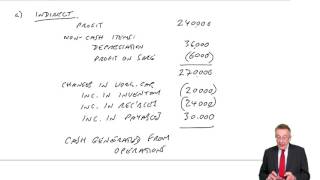 a) INDIRECT.
PROFIT 240000
NON-CASH ITEMS:
DEPRECIATION 36000
PROFIT ON SALE (6000)
270000
CHANGES IN WORK. CAP.
INC. IN INVENTORY (20000)
INC. IN REC'BLES (24000)
INC. IN PAYABLES 30.000
CASH GENERATED FROM
OPERATIONS